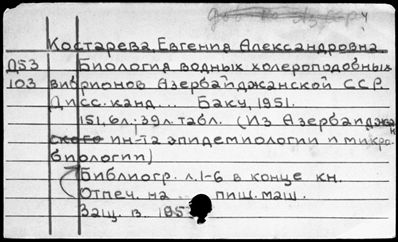 Костарева, Евгения Александровна
Д53 Биология водных холероподобных
103 вибрионов Азербайджанской ССР.
Дисс. канд... Баку, 1951.
151, 6 л.; 39 л. табл. (Из Азербайджанского
ин-та эпидемиологии и микро-
биологии)
Библиогр. л. 1-6 в конце кн.
Отпеч. на .. пиш. маш.
Защ. в. 195